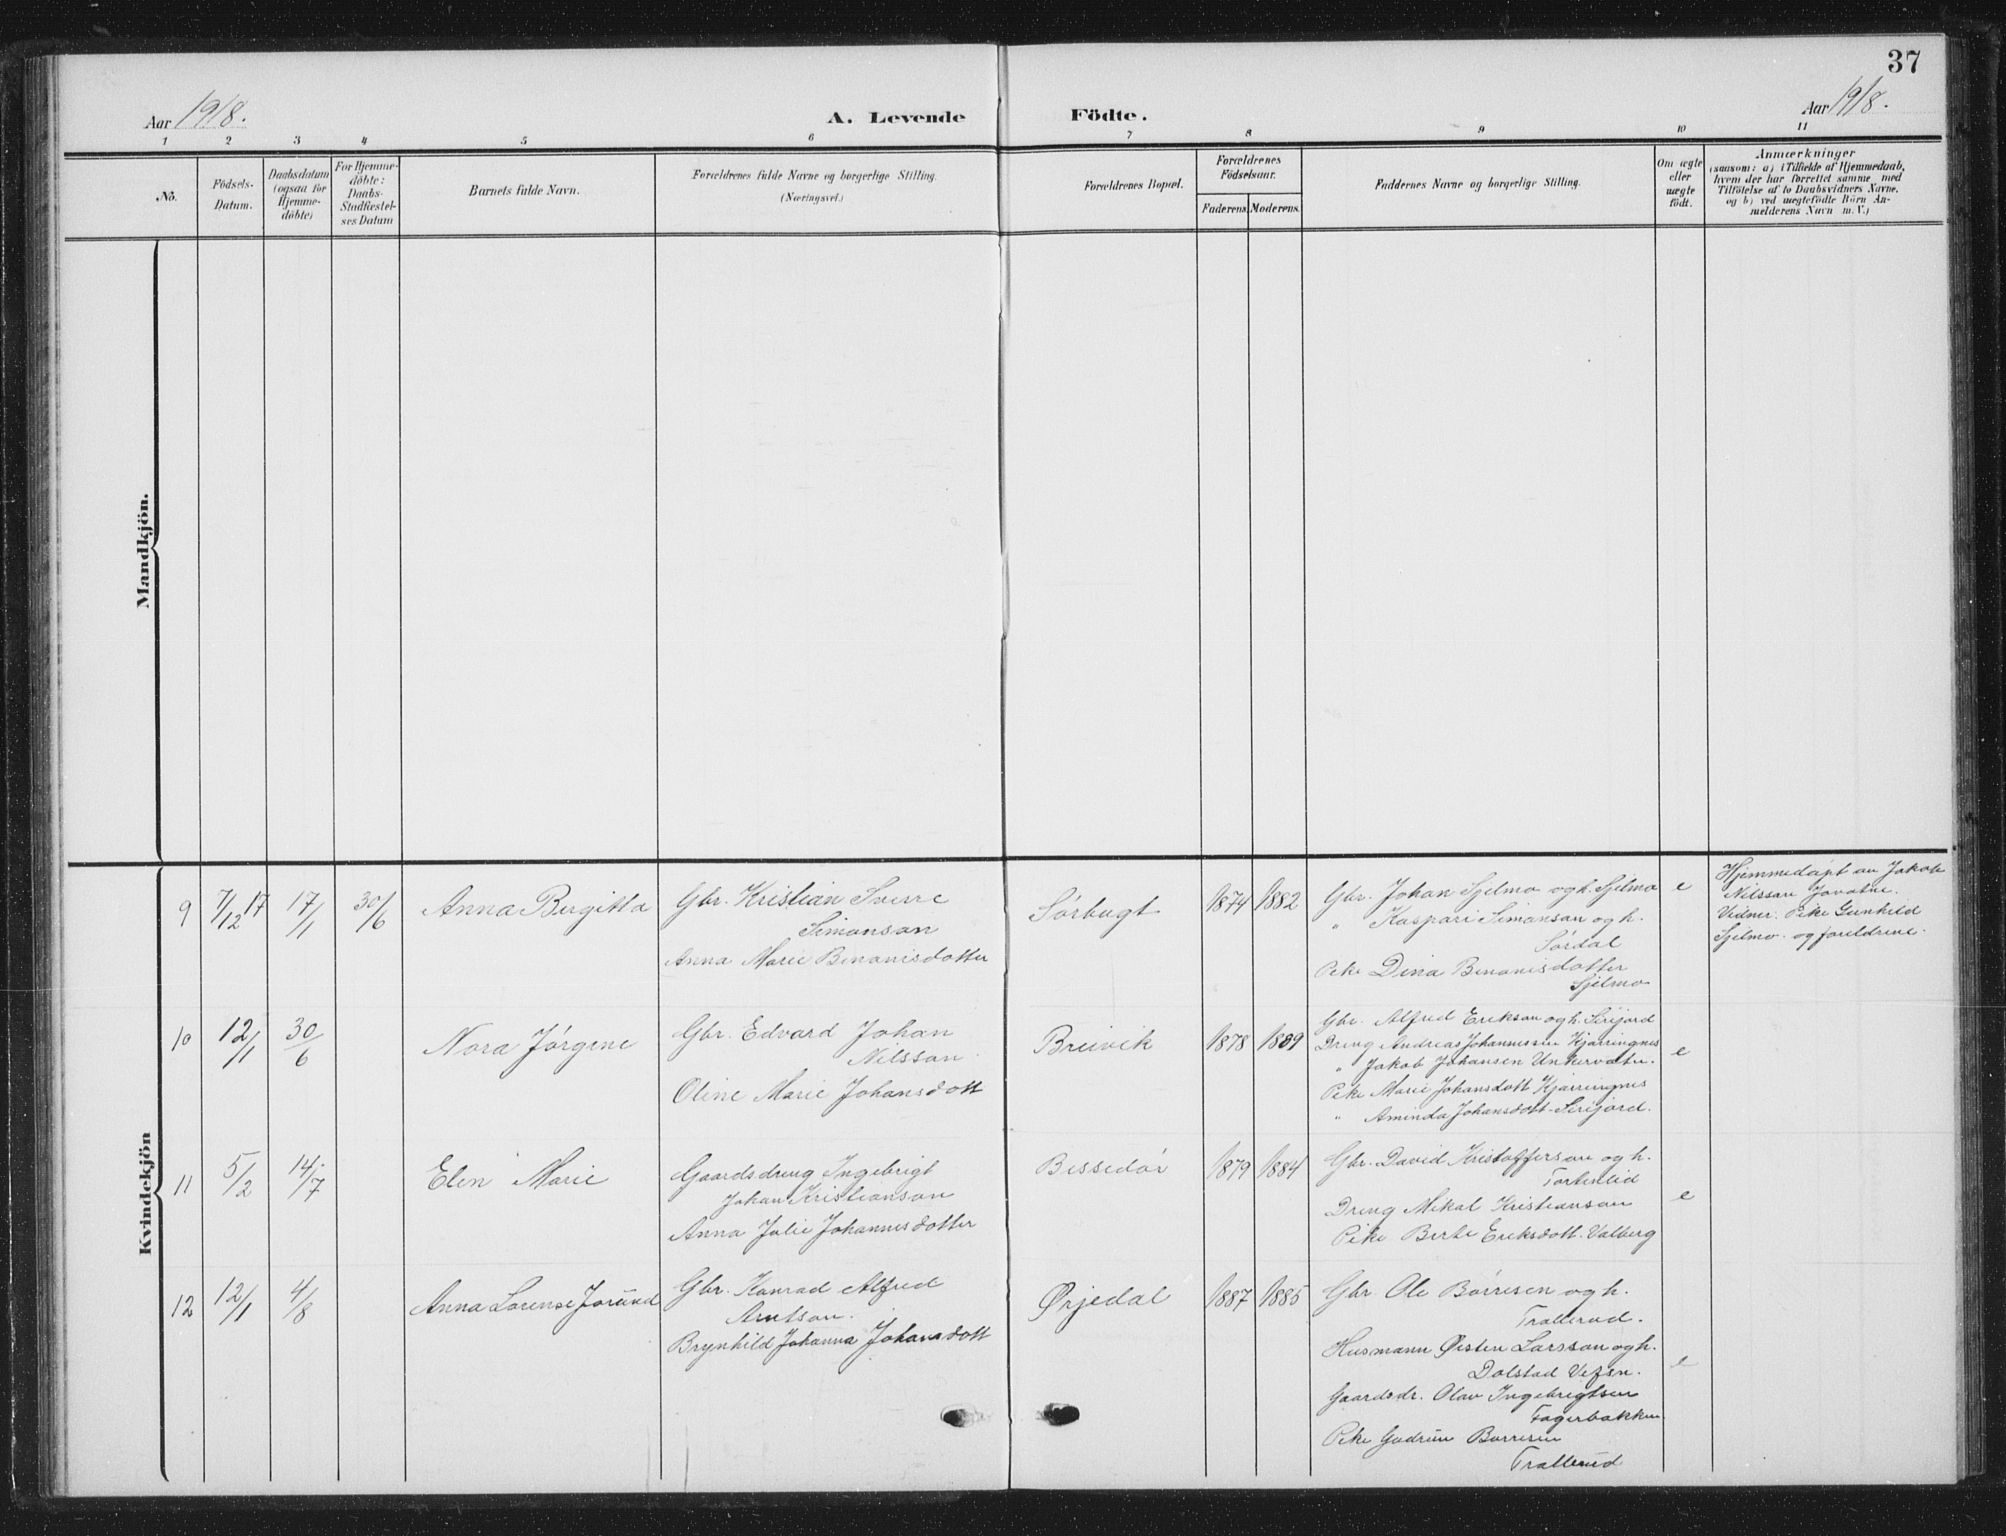 37
Aar 1918. A. Levende Födte. Aar 1918.
1 2 3 4 5 6 7 8 9 10 11
No.
Födsels-
Datum.
Daabsdatum
(ogsaa for
Hjemme-
döbte)
For Hjemme-
döbte:
Daabs-
Stadfæstel-
ses Datum
Barnets fulde Navn.
Forældrenes fulde Navne og borgerlige Stilling.
(Næringsvei.)
Forældrenes Bopæl.
Forældrenes
Födselsaar.
Faderens. Moderens.
Faddernes Navne og borgerlige Stilling.
Om ægte
eller
uægte
födt.
Anmærkninger
(saasom: a) i Tilfælde af Hjemmedaab,
hvem der har forrettet samme, med
Tilföielse af to Daabsvidners Navne.
og b) ved uægtefödte Börn An-
melderens Navn m. V.)
Mandkjön.
Kvindekjön
9
7/12 17
17/1
30/6
Anna Birgitta
Gbr. Kristian Sverre
Simonson
Anna Marie Benonisdotter
Sørbugt
1874 1882
Gbr. Johan Sjelmo og h. Sjelmo
" Kaspari Simonsan og h.
Sørdal
Pike Dina Benonisdotter
Sjelmo
e
Hjemmedøpt av Jakob
Nilssan
Vidner. Pike Gunhild
Sjelmo og foreldrene.
10
12/1
30/6
Nora Jørgine
Gbr. Edvard Johan
Nilsson
Oline Marie Johansdott
Breivik
1878 1889
Gbr. Alfred Erikson og h. Sirijord
Dreng Andreas Johannessen Kjærringnes
" Jakob Johansen Unkervatn.
Pike Marie Johansdott Kjærringnes
" Aminda Johansdott. Sirijord.
e
11
5/2
14/7
Elen Marie
Gaardsdreng Ingebrigt
Johan Kristianson
Anna Julie Johannesdotter
Bessedør
1879 1884
Gbr. David Kristofferson og h.
Fortenlid
Dreng Mikal Kristianson
Pike Berte Eriksdott. Valberg
e
12
12/1
4/8
Anna Lorense Jorund
Gbr. Konrad Alfred
Arntson.
Brynhild Johanna Johansdott
Ørjedal
1887 1885
Gbr. Ole Børresen og h.
Trallerud.
Husmann Østen Larsson og h.
Dolstad Vefsn.
Gaardsdr. Olav Ingebrigtsen
Fagerbakken
Pike Gudrun Børresen
Trallerud
e